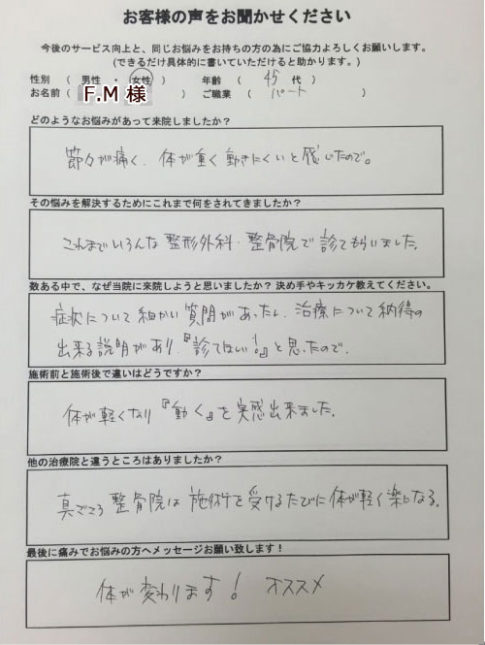 お客様の声をお聞かせください
今後のサービス向上と、同じお悩みをお持ちの方の為にご協力よろしくお願いします。
(できるだけ具体的に書いていただけると助かります。)
性別 ( 男性 ・ 女性 ) 年齢 ( 45 代 )
お名前 ( F.M 様 ) ご職業 ( パート )
どのようなお悩みがあって来院しましたか?
節々が痛く、体が重く動きにくいと感じたので。
その悩みを解決するためにこれまで何をされてきましたか?
これまでいろんな整形外科・整骨院で診てもらいました。
数ある中で、なぜ当院に来院しようと思いましたか? 決め手やキッカケ教えてください。
症状について細かい質問があったし、治療について納得の
出来る説明があり、『診てほしい!』と思ったので。
施術前と施術後で違いはどうですか?
体が軽くなり『動く』を実感出来ました。
他の治療院と違うところはありましたか?
真ごころ整骨院は施術を受けるたびに体が軽く楽になる。
最後に痛みでお悩みの方へメッセージお願い致します!
体が変わります! オススメ